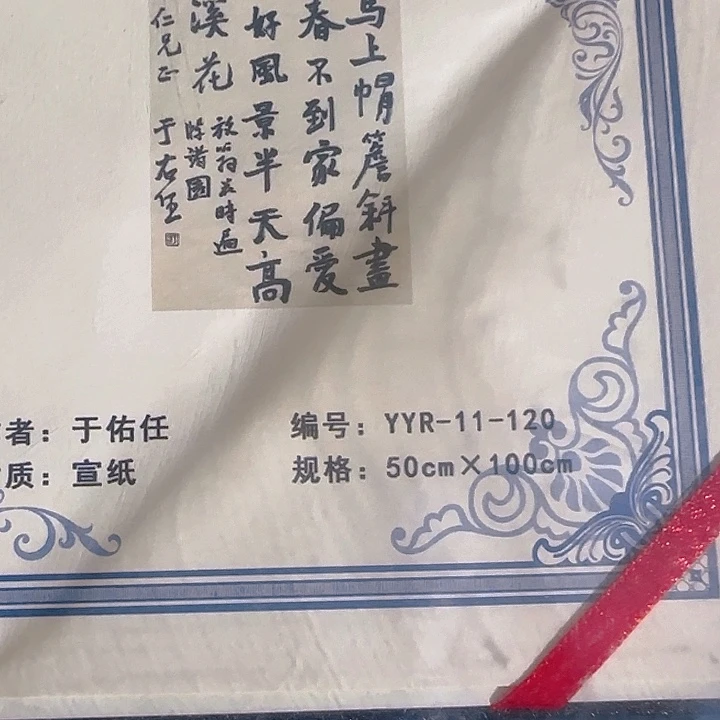 马上帽簷斜盡
春不到家偏愛
好風景半天高
溪花
放翁
時過
圖
仁兄正
于右任
者：于佑任
编号：YYR-11-120
质：宣纸
规格：50cm×100cm